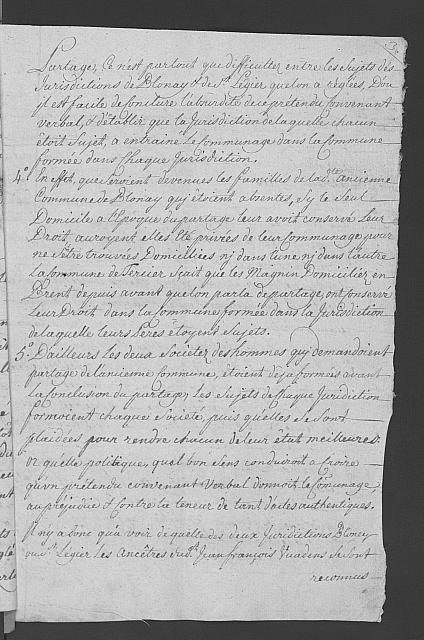 Partage, Ce n'est partout que difficultez entre les Sujets des
Jurisdictions de Blonay & de St. Légier quelon a réglées, D'ou
il est facile de conclure l'absurdité de ce prétendu Convenant
verbal, & d'établir que la Jurisdiction de laquelle chacun
étoit Sujet, a entrainé le Communage dans la Commune
formée dans Chaque Jurisdiction.
4°. En effet, que seroient devenues les familles de la dte. ancienne
Commune de Blonay qui étoient absentes, Sy le Seul
Domicile a l'Epoque du partage leur avoit conservé Leur
Droit, auroyent elles été privées de leur Communage pour
ne s'être trouvées Domiciliées nj dans l'une nj dans l'autre
La Commune de Sercier Sçait que les Magnin Domiciliez en
Brent depuis avant quelon parla de partage, ont conservé
Leur Droit dans la Commune formée dans la Jurisdiction
de laquelle leurs Peres étoyent Sujets.
5°. D'ailleurs les deux Societez des hommes quj demandoient
partage de l'ancienne Commune, étoient déja formées avant
la Conclusion du partage, les Sujets de Chaque Juridiction
formoient chaque Société, puis qu'elles se sont
plaidées pour rendre chacun de leur état meilleures
Or qu'elle politique, quel bon Sens conduiroit a Croire
qu'un prétendu convenant Verbal donnoit le Comunage,
au préjudice & Contre la teneur de tant d'actes authentiques.
Il n'y a donc qu'a voir de quelle des deux Juridictions Bloney
ou St. Légier les Ancêtres du dt. Jean françois Vuadens se sont
reconnus